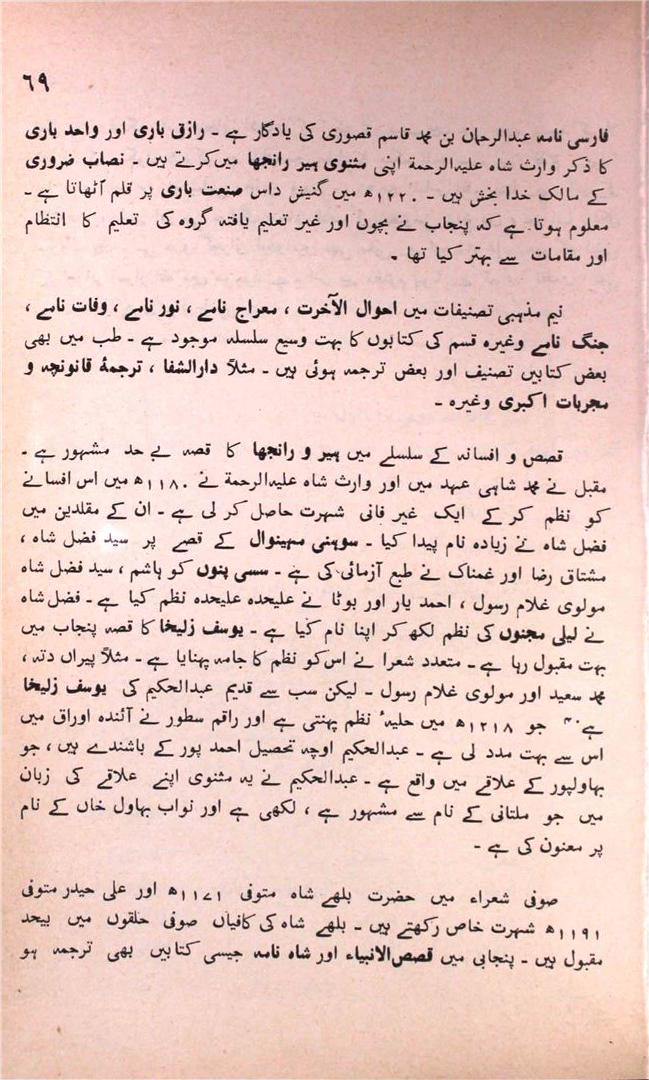 ٦٩
فارسی نامہ عبدالرحمان بن محمد قاسم قصوری کی یادگار ہے ۔ رازق باری اور واحد باری
کا ذکر وارث شاہ علیہ الرحمۃ اپنی مثنوی ہیر رانجھا میں کرتے ہیں ۔ نصاب ضروری
کے مالک خدا بخش ہیں ۔ ۱۲۲۰ھ میں گنیش داس صنعت باری پر قلم اٹھاتا ہے ۔
معلوم ہوتا ہے کہ پنجاب نے بچوں اور غیر تعلیم یافتہ گروہ کی تعلیم کا انتظام
اور مقامات سے بہتر کیا تھا ۔
نیم مذہبی تصنیفات میں احوال الآخرت ، معراج نامے ، نور نامے ، وفات نامے ،
جنگ نامے وغیرہ قسم کی کتابوں کا بہت وسیع سلسلہ موجود ہے ۔ طب میں بھی
بعض کتابیں تصنیف اور بعض ترجمہ ہوئی ہیں ۔ مثلاً دارالشفا ، ترجمۂ قانونچہ و
مجربات اکبری وغیرہ ۔
قصص و افسانہ کے سلسلے میں ہیر و رانجھا کا قصہ بے حد مشہور ہے ۔
مقبل نے محمد شاہی عہد میں اور وارث شاہ علیہ الرحمۃ نے ۱۱۸۰ھ میں اس افسانے
کو نظم کر کے ایک غیر فانی شہرت حاصل کر لی ہے ۔ ان کے مقلدین میں
فضل شاہ نے زیادہ نام پیدا کیا ۔ سوہنی مہینوال کے قصے پر سید فضل شاہ ،
مشتاق رضا اور غمناک نے طبع آزمائی کی ہے ۔ سسی پنوں کو ہاشم ، سید فضل شاہ
مولوی غلام رسول ، احمد یار اور بوٹا نے علیحدہ علیحدہ نظم کیا ہے ۔ فضل شاہ
نے لیلیٰ مجنوں کی نظم لکھ کر اپنا نام کیا ہے ۔ یوسف زلیخا کا قصہ پنجاب میں
بہت مقبول رہا ہے ۔ متعدد شعرا نے اس کو نظم کا جامہ پہنایا ہے ۔ مثلاً پیراں دتہ ،
محمد سعید اور مولوی غلام رسول ۔ لیکن سب سے قدیم عبدالحکیم کی یوسف زلیخا
ہے جو ۱۲۱۸ھ میں حلیۂ نظم پہنتی ہے اور راقم سطور نے آئندہ اوراق میں
اس سے بہت مدد لی ہے ۔ عبدالحکیم اوچہ تحصیل احمد پور کے باشندے ہیں ، جو
بہاولپور کے علاقے میں واقع ہے ۔ عبدالحکیم نے یہ مثنوی اپنے علاقے کی زبان
میں جو ملتانی کے نام سے مشہور ہے ، لکھی ہے اور نواب بہاول خاں کے نام
پر معنون کی ہے ۔
صوفی شعراء میں حضرت بلھے شاہ متوفی ۱۱۷۱ھ اور علی حیدر متوفی
۱۱۹۱ھ شہرت خاص رکھتے ہیں ۔ بلھے شاہ کی کافیاں صوفی حلقوں میں بیحد
مقبول ہیں ۔ پنجابی میں قصص الانبیاء اور شاہ نامہ جیسی کتابیں بھی ترجمہ ہو